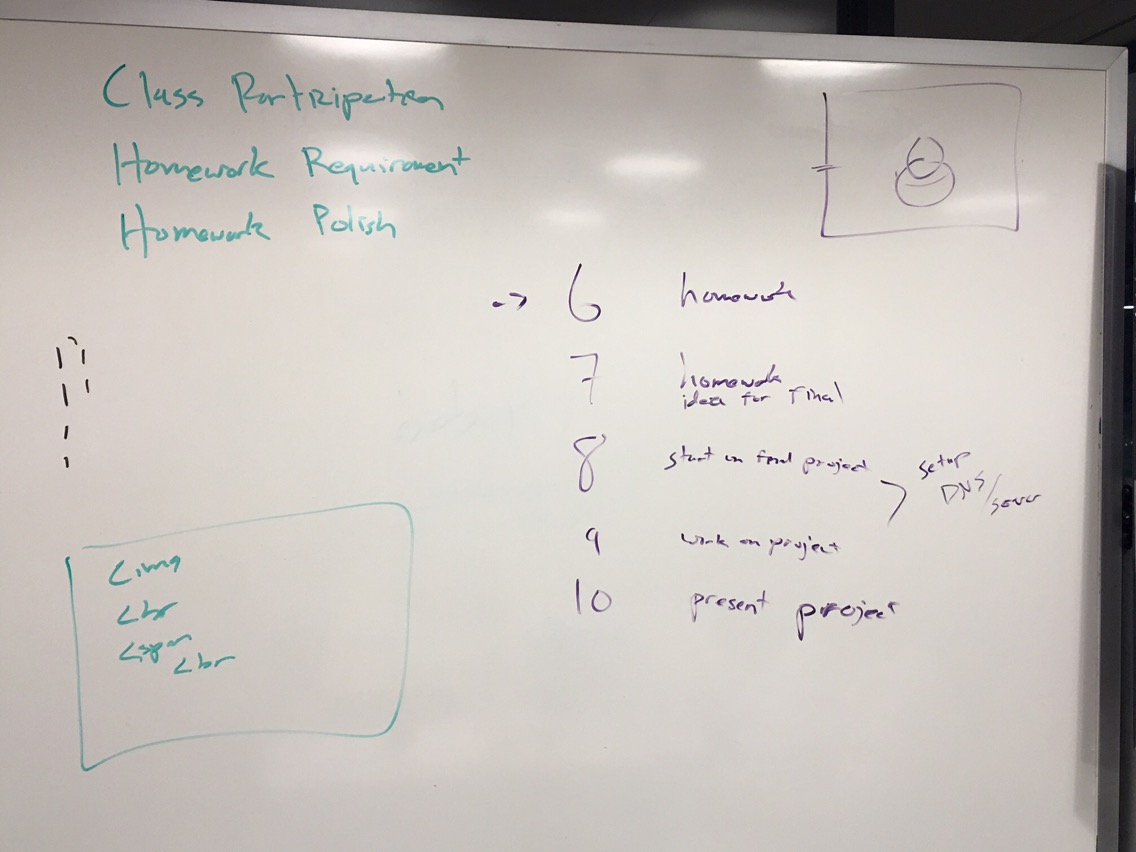 Class Participation
Homework Requirement
Homework Polish
-> 6 homework
7 homework
idea for final
8 start on final project
setup
DNS/server
9 work on project
10 present project
<img
<br
<span
<br